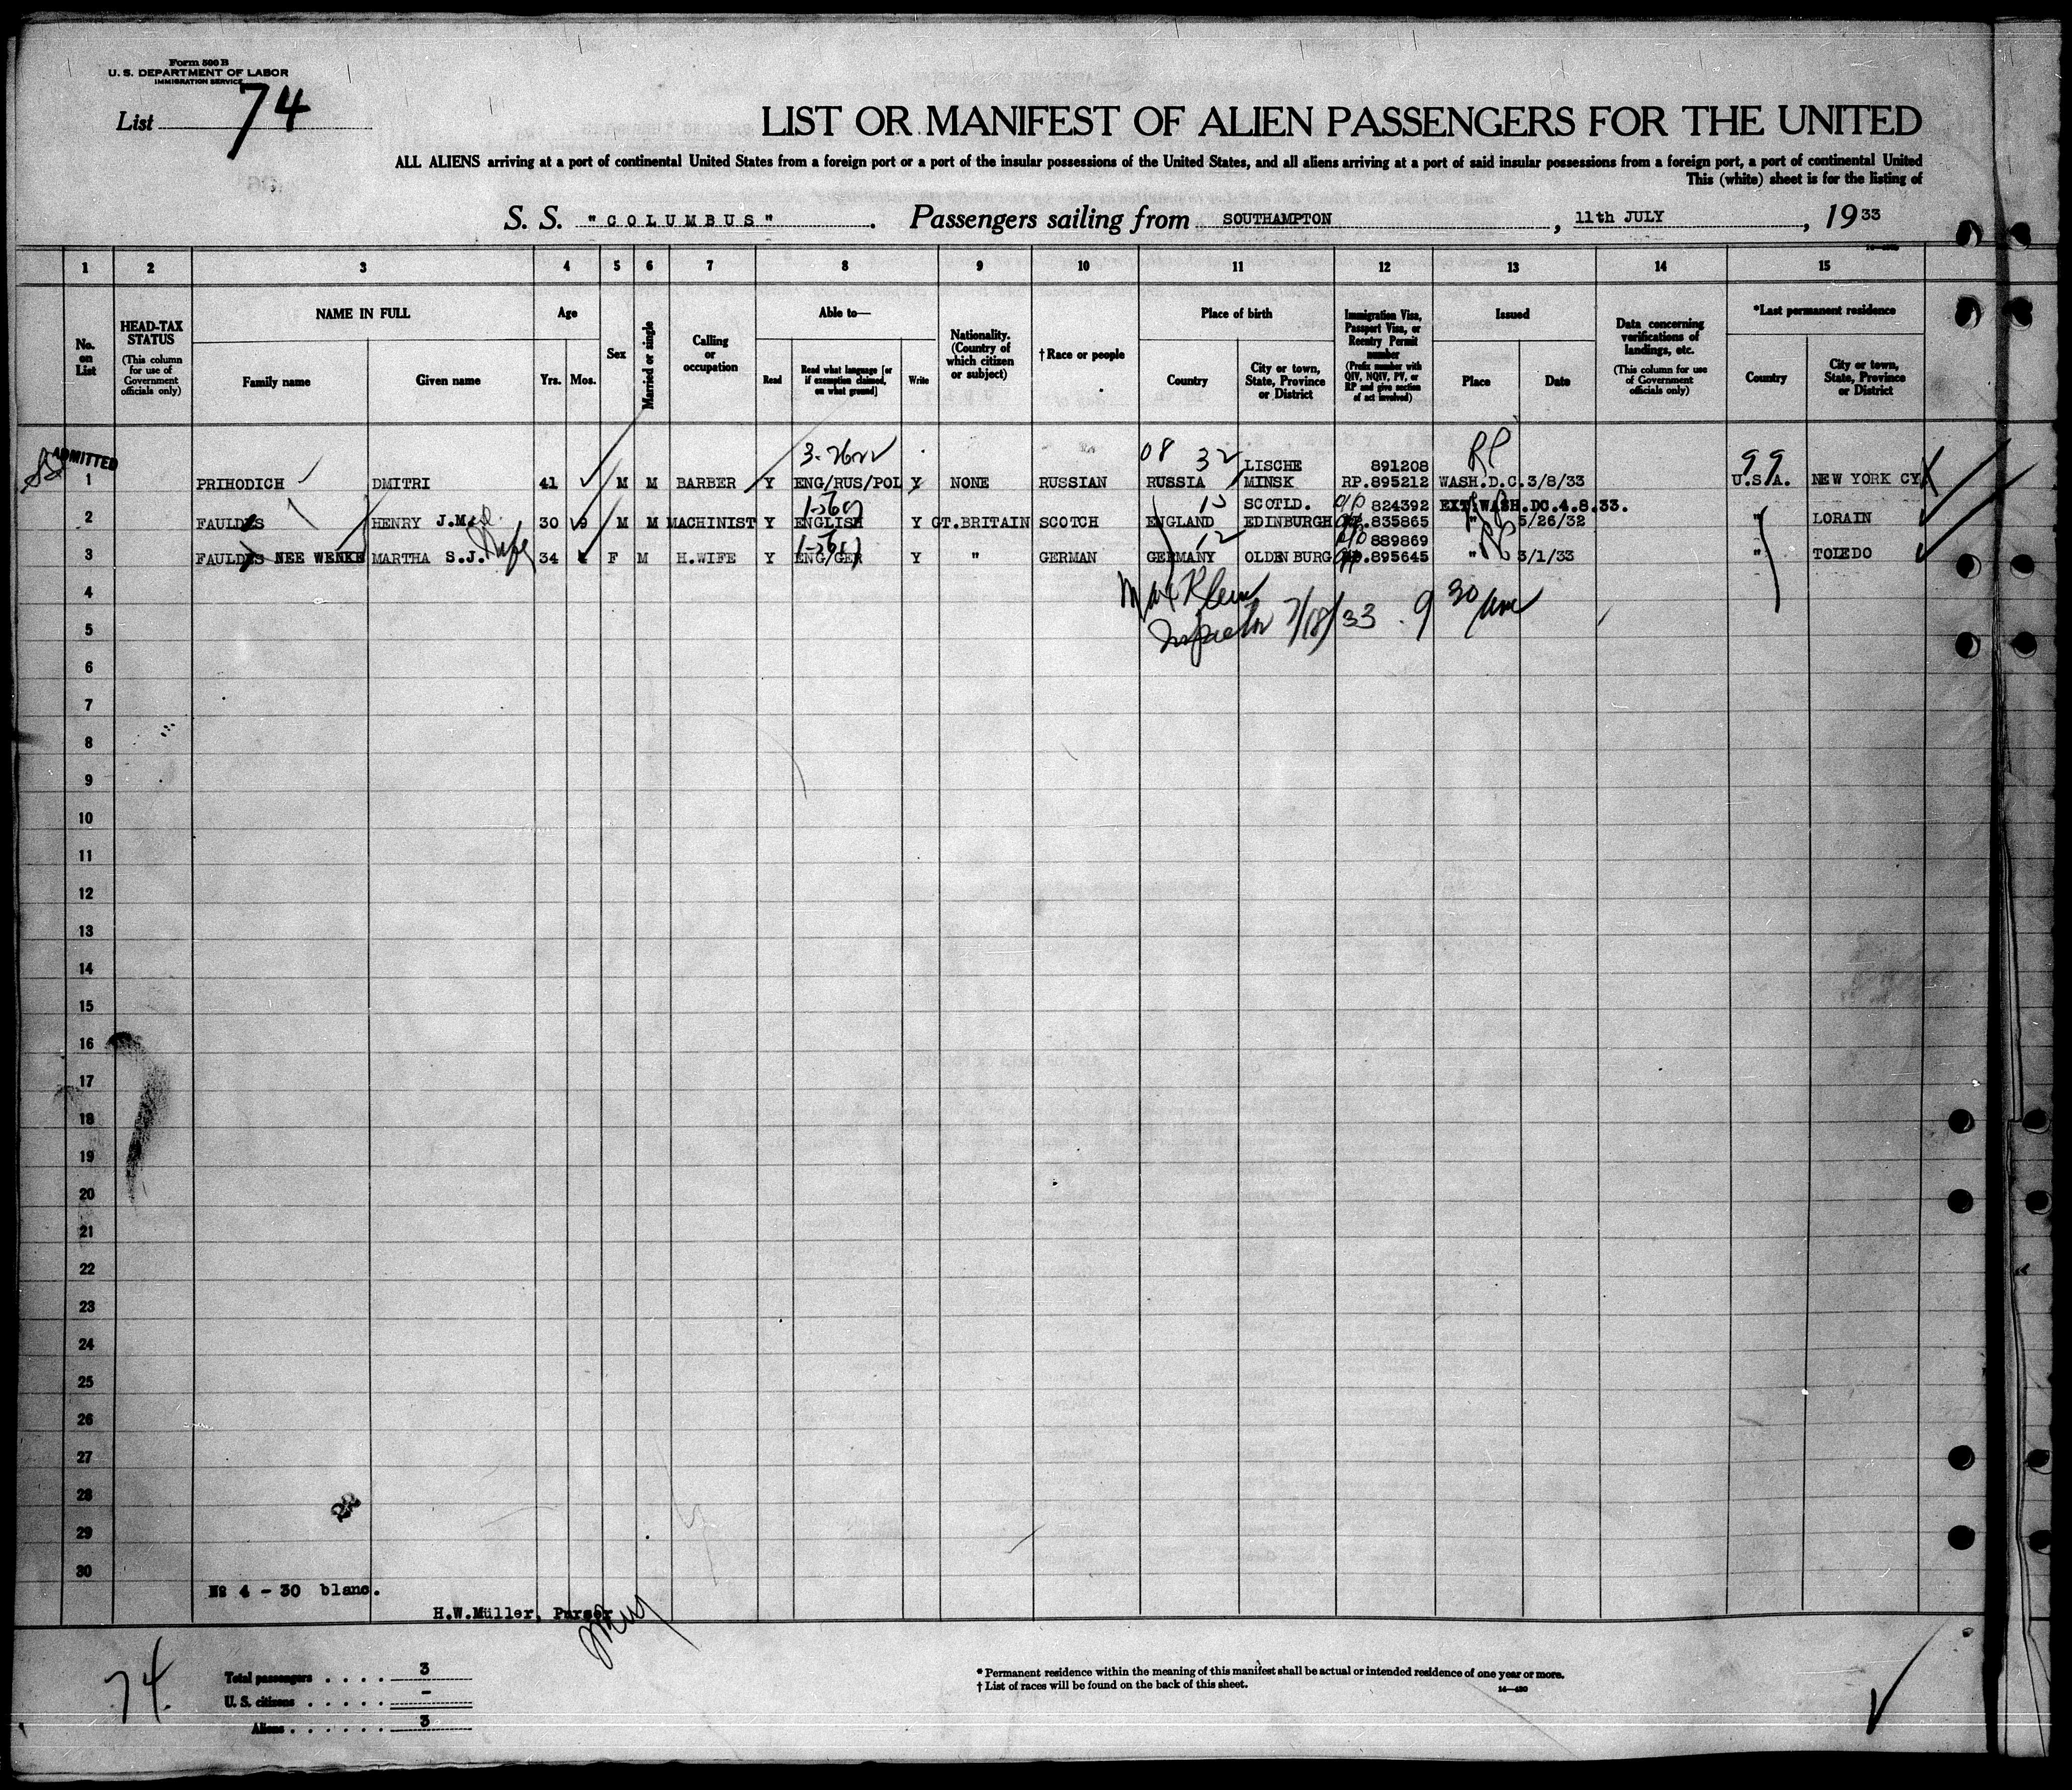 Form 500 B
U. S. DEPARTMENT OF LABOR
IMMIGRATION SERVICE
List 74
LIST OR MANIFEST OF ALIEN PASSENGERS FOR THE UNITED
ALL ALIENS arriving at a port of continental United States from a foreign port or a port of the insular possessions of the United States, and all aliens arriving at a port of said insular possessions from a foreign port, a port of continental United
This (white) sheet is for the listing of
S. S. "COLUMBUS". Passengers sailing from SOUTHAMPTON, 11th JULY, 1933
1 2 3 4 5 6 7 8 9 10 11 12 13 14 15
No. on List
HEAD-TAX STATUS (This column for use of Government officials only)
NAME IN FULL
Family name
Given name
Age
Yrs. Mos.
Sex
Married or single
Calling or occupation
Able to—
Read
Read what language [or if exemption claimed, on what ground]
Write
Nationality. (Country of which citizen or subject)
†Race or people
Place of birth
Country
City or town, State, Province or District
Immigration Visa, Passport Visa, or Reentry Permit number (Prefix number with QIV, NQIV, PV, or RP and give section of act involved)
Issued
Place
Date
Data concerning verifications of landings, etc. (This column for use of Government officials only)
*Last permanent residence
Country
City or town, State, Province or District
ADMITTED
08 32 LISCHE 891208 RP 99
1 PRIHODICH DMITRI 41 M M BARBER Y ENG/RUS/POL Y NONE RUSSIAN RUSSIA MINSK RP.895212 WASH.D.C. 3/8/33 U.S.A. NEW YORK CY
SCOTLD. 824392 EXT.WASH.DC.4.8.33.
2 FAULDS HENRY J.M. 30 9 M M MACHINIST Y ENGLISH Y GT.BRITAIN SCOTCH ENGLAND EDINBURGH 835865 " 5/26/32 " LORAIN
889869
3 FAULDS NEE WENKE MARTHA S.J. Wife 34 F M H.WIFE Y ENG/GER Y " GERMAN GERMANY OLDENBURG 895645 " 3/1/33 " TOLEDO
4 Max Klein
5 Inspector 7/18/33 9 30 am
6
7
8
9
10
11
12
13
14
15
16
17
18
19
20
21
22
23
24
25
26
27
28
29
30
No 4 - 30 blanc.
H.W.Müller, Purser
74.
Total passengers . . . . 3
U. S. citizens . . . . . -
Aliens . . . . . . 3
* Permanent residence within the meaning of this manifest shall be actual or intended residence of one year or more.
† List of races will be found on the back of this sheet.
14—430